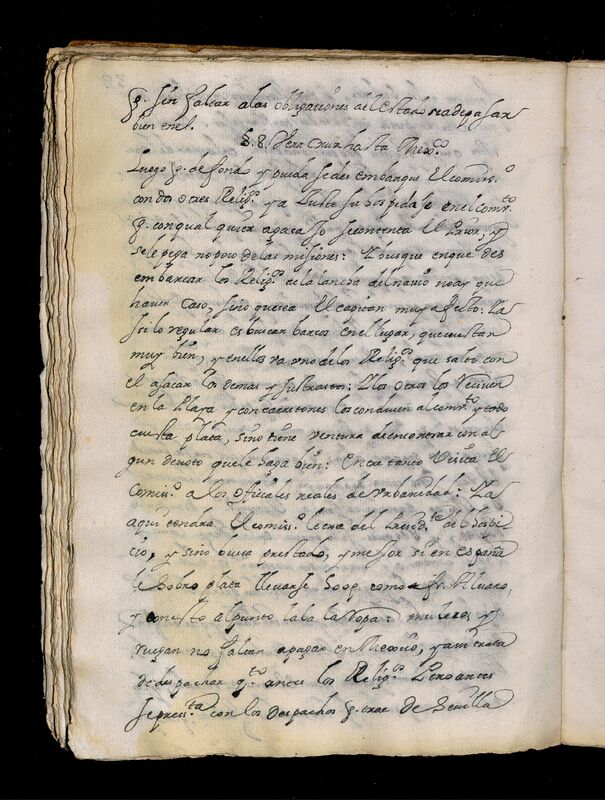 q.e sin faltar a las obligaciones del estado se a de pasar
bien en el.
§. 8. Vera Cruz hasta Mex.co
Luego q.e de fondo y pueda se desembarque El comiss.o
con dos o tres Relig.s y a Puesto su hospedaje en el conv.to
q.e con qualquier agasajo se contenta El Prior, y
se le pega no poco de las misiones: Y busque en que des
embarcar los Relig.s de la lancha del navio no ay que
hacer caso, sino que sea el capitan muy afecto: Y a
si lo regular es buscar barcos en el lugar, que cuestan
muy bien, y en ellos va uno de los Relig.s que salto con
el a sacar los demas y sus trastos: Y los otros los Reciven
en la Playa y con carretones los conducen al conv.to y todo
cuesta plata, sino tiene ventura de encontrar con al
gun devoto que le haga bien: Entre tanto Visita El
Comiss.o a los officiales reales de urbanidad: Ya
aqui tendra El comiss.o letra del Presid.te del Hospi
cio, y sino busca prestado, y mejor si en españa
le sobro plata llevarse 500p como fr. Alvaro,
y con esto al punto laba la Ropa: muleros y
ruegan no faltan a pagar en Mexico, y asi trata
de despachar q.to antes los Relig.s Pero antes
se pres.ta con los despachos q.e trae de Sevilla